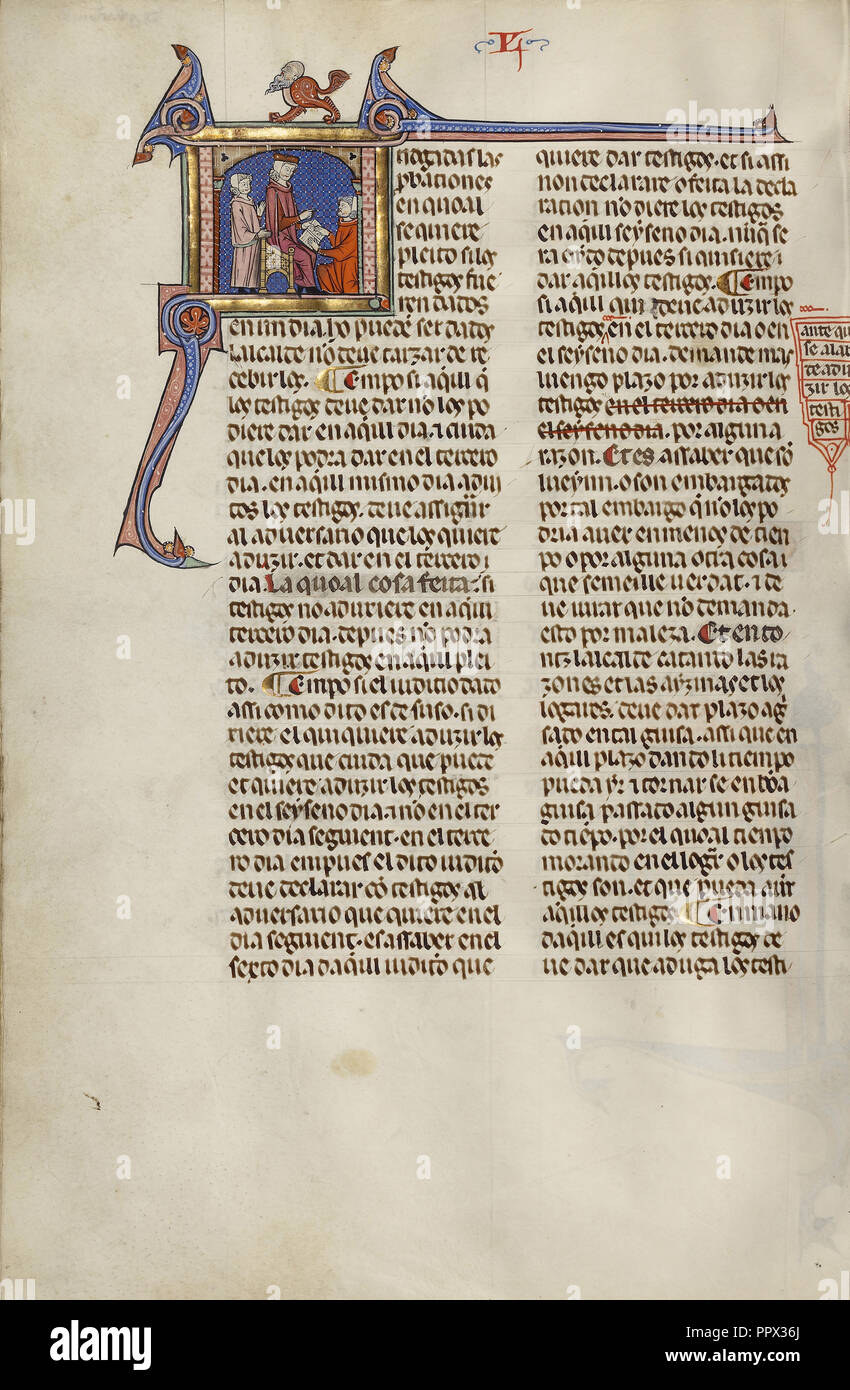 VI
tiog a das las
p̄bationes
en quoal
se quiere
pleito si los
testigos fue
ren dados
en un dia. ho puede ser dados
lalcalde nō deue tarzar de re
cebir los. ¶ Empo si aqui q̄
los testigos deue dar nō los po
diere dar en aqui dia. ⁊ cuida
que los podra dar en el tercero
dia. en aqui mismo dia adui
tos los testigos. deue assignar
al aduersario que los quiere
aduzir. et dar en el tercero
dia. La quoal cosa feita. si
testigos no aduziere en aqui
tercero dia. depues nō podra
aduzir testigos en aqui plei
to. ¶ Empo si el iuditio dado
assi como dito es de suso. si di
xiere el qui quiere aduzir los
testigos que cuida que puede
et quiere aduzir los testigos
en el seyseno dia. ⁊ no en el ter
cero dia seguient. en el terce
ro dia empues el dito iudicio
deue declarar cō testigos al
aduersario que quiere en el
dia seguient. es assaber en el
sexto dia daqui iudicio que
quiere dar testigos. et si assi
non declarare o feita la decla
ration nō diere los testigos
en aqui seyseno dia. nūq̄ se
ra oydo depues si quisiere
dar aqillos testigos. ¶ Empo
si aqui qui deue aduzir los
testigos en el tercero dia o en
el seyseno dia. demande mas
luengo plazo por aduzir los
testigos en el tercero dia o en
el seyseno dia. por alguna
razon. Et es assaber que sō
lueyn. o son embargados
por tal embargo q̄ nō los po
dria auer en menos de tiem
po o por alguna otra cosa
que semeille uerdat. ⁊ de
ue iurar que nō demanda
esto por maleza. Et en to
ntz lalcalde catando las ra
zones et las et los
logares. deue dar plazo
sado en tal guisa. assi que en
aqui plazo dando li tiempo
pueda yr ⁊ tornar se en bōa
guisa passado algun guisa
do tiēpo. por el quoal tiempo
morando en el logar o los tes
tigos son. et que pueda auer
aqillos testigos. ¶ En mano
daqui es qui los testigos de
ue dar que aduga los testi
ante qu
se alar
de adu
zir los
testi
gos
alamy
Image ID: PPX36J
www.alamy.com